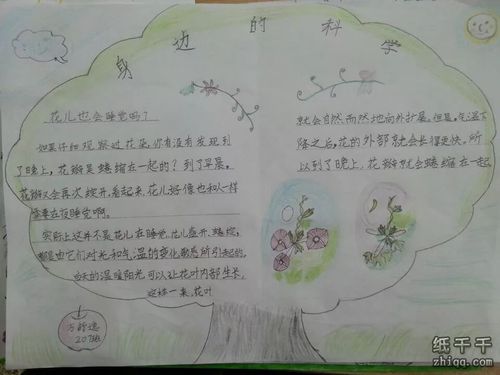 身边的科学
花儿也会睡觉吗?
如果仔细观察过花朵,你有没有发现到
了晚上,花瓣是蜷缩在一起的?到了早晨,
花瓣又会再次绽开,看起来,花儿好像也和人一样
需要在夜睡觉啊。
实际上这并不是花儿在睡觉,花儿盛开、蜷缩,
都是由它们对光和气温的变化敏感所引起的。
白天的温暖阳光可以让花内部生长,
这样一来,花叶
就会自然而然地向外扩展。但是,气温下
降之后,花的外部就会长得更快,所
以到了晚上,花瓣就会蜷缩在一起
207班
纸千千
zhiqq.com